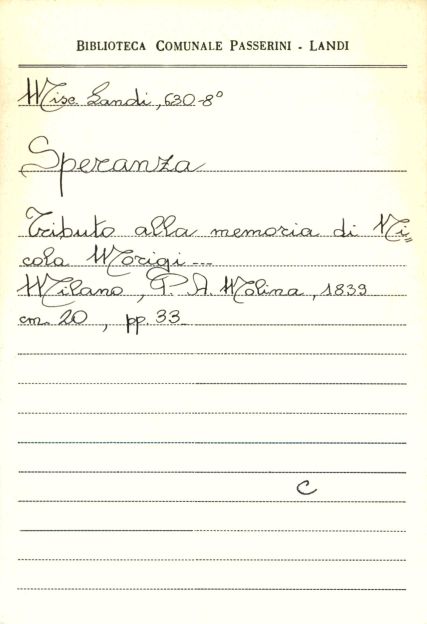 BIBLIOTECA COMUNALE PASSERINI - LANDI
Misc. Landi, 630-8°
Speranza
Tributo alla memoria di Ni=
cola Morigi ...
Milano, P. A. Molina, 1839
cm. 20, pp. 33
C